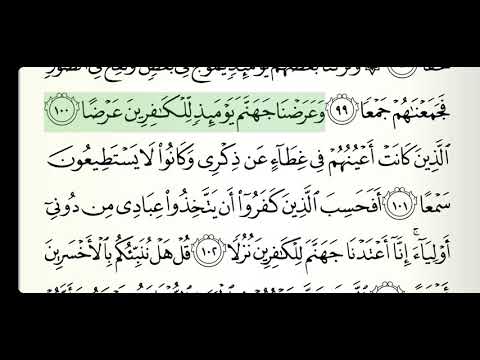 فَجَمَعْنَٰهُمْ جَمْعًا ٩٩ وَعَرَضْنَا جَهَنَّمَ يَوْمَئِذٍ لِّلْكَٰفِرِينَ عَرْضًا ١٠٠
ٱلَّذِينَ كَانَتْ أَعْيُنُهُمْ فِى غِطَآءٍ عَن ذِكْرِى وَكَانُوا۟ لَا يَسْتَطِيعُونَ
سَمْعًا ١٠١ أَفَحَسِبَ ٱلَّذِينَ كَفَرُوٓا۟ أَن يَتَّخِذُوا۟ عِبَادِى مِن دُونِىٓ
أَوْلِيَآءَ ۚ إِنَّآ أَعْتَدْنَا جَهَنَّمَ لِلْكَٰفِرِينَ نُزُلًا ١٠٢ قُلْ هَلْ نُنَبِّئُكُم بِٱلْأَخْسَرِينَ